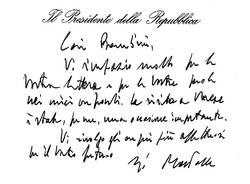 Il Presidente della Repubblica
Cari Bambini,
Vi ringrazio molto per la
vostra lettera e per le vostre parole
nei miei confronti. La visita a Varese
è stata, per me, una occasione importante.
Vi rivolgo gli auguri più affettuosi
per il vostro futuro